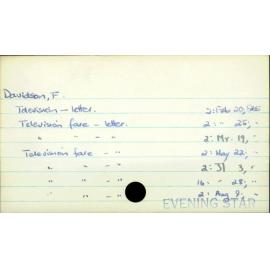 Davidson, F.
Television - letter. 2: Feb 20, '25
Television fare - letter. 2: - 25, -
" " - " 2: Mr. 19, -
Television fare - " 2: May 22, -
" " - " 2: Jl 3, -
" " - " 16: - 28, -
" " - " 2: Aug 8, -
EVENING STAR